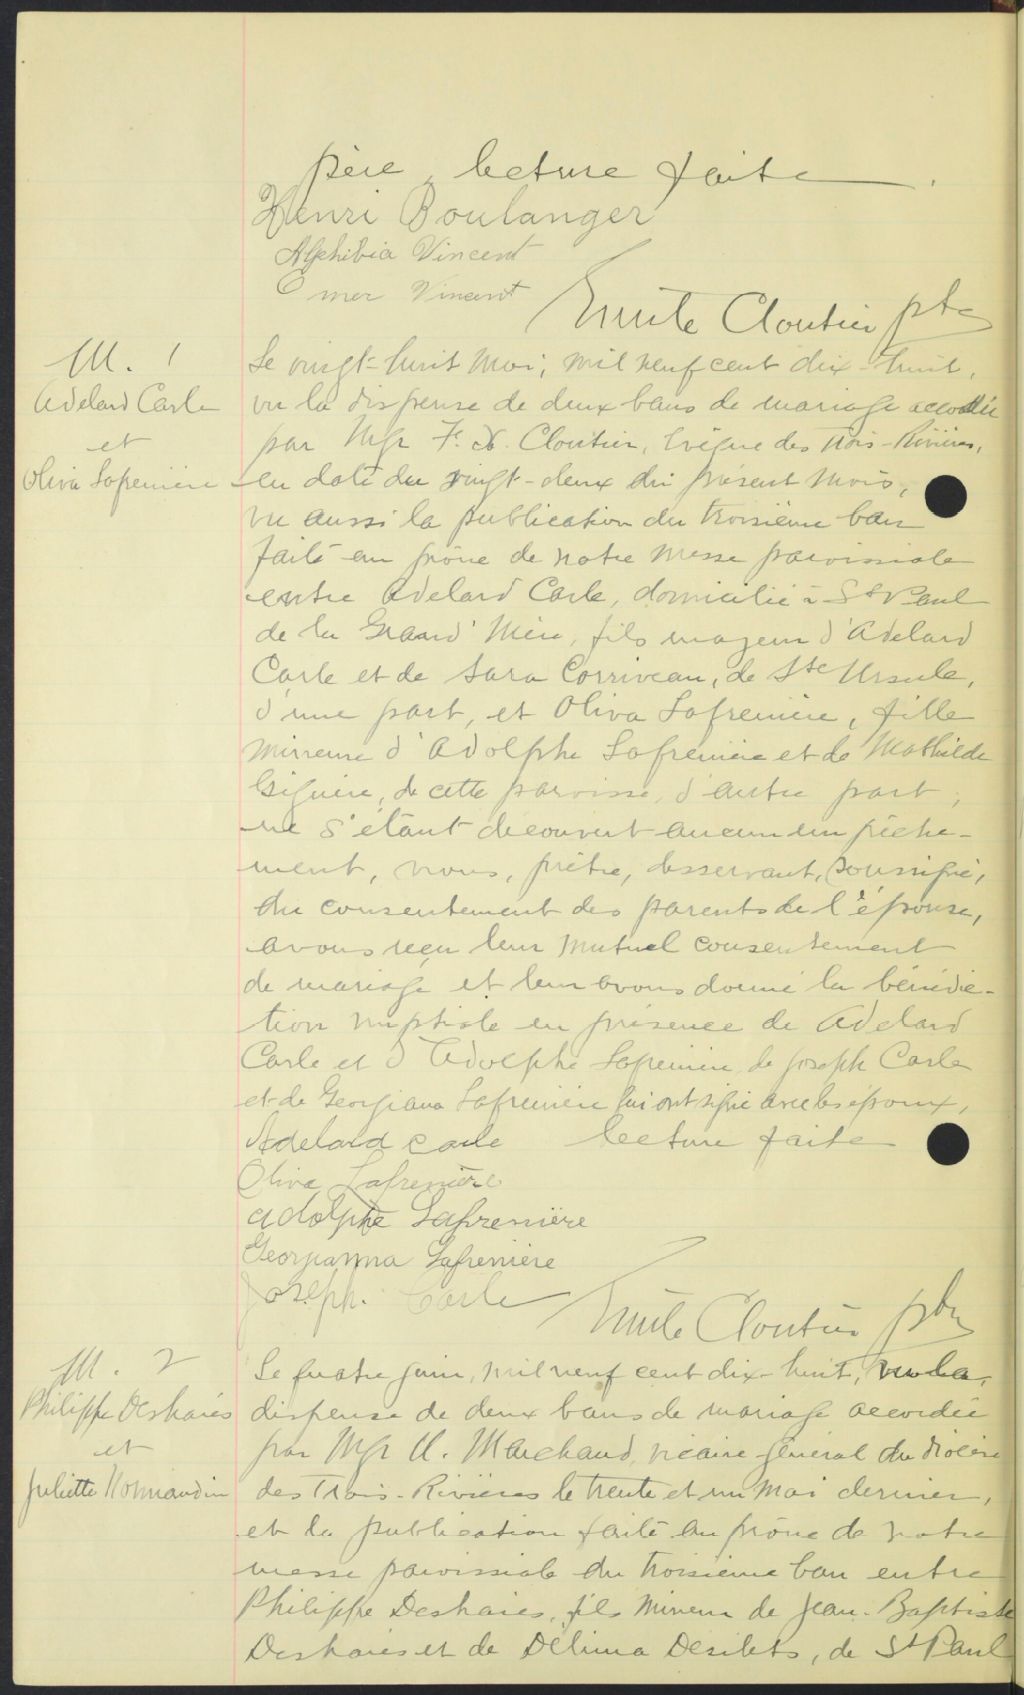 père, lecture faite.
Henri Boulanger
Alphibia Vincent
Omer Vincent
Emile Cloutier ptre
M. 1
Adelard Carle
et
Oliva Lafrenière
Le vingt-huit Mai, mil neuf cent dix-huit,
vu la dispense de deux bans de mariage accordée
par Mgr F. X. Cloutier, Evêque des Trois-Rivières,
en date du vingt-deux du présent mois,
vu aussi la publication du troisième ban
faite au prône de notre messe paroissiale
entre Adelard Carle, domicilié à St Paul
de la Grand'Mère, fils majeur d'Adelard
Carle et de Sara Corriveau, de Ste Ursule,
d'une part, et Oliva Lafrenière, fille
mineure d'Adolphe Lafrenière et de Mathilde
Giguère, de cette paroisse, d'autre part;
ne s'étant découvert aucun empêche-
ment, nous, prêtre, desservant, soussigné,
du consentement des parents de l'épouse,
avons reçu leur mutuel consentement
de mariage et leur avons donné la bénédic-
tion nuptiale en présence de Adelard
Carle et d'Adolphe Lafrenière, de Joseph Carle
et de Georgiana Lafrenière qui ont signé avec les époux,
Adelard Carle lecture faite
Oliva Lafrenière
Adolphe Lafrenière
Georgianna Lafrenière
Joseph Carle
Emile Cloutier ptre
M. 2
Philippe Deshaies
et
Juliette Normandin
Le quatre juin, mil neuf cent dix-huit, vu la
dispense de deux bans de mariage accordée
par Mgr U. Marchand, vicaire général du diocèse
des Trois-Rivières le trente et un Mai dernier,
et la publication faite au prône de notre
messe paroissiale du troisième ban entre
Philippe Deshaies, fils mineur de Jean-Baptiste
Deshaies et de Délima Desilets, de St Paul